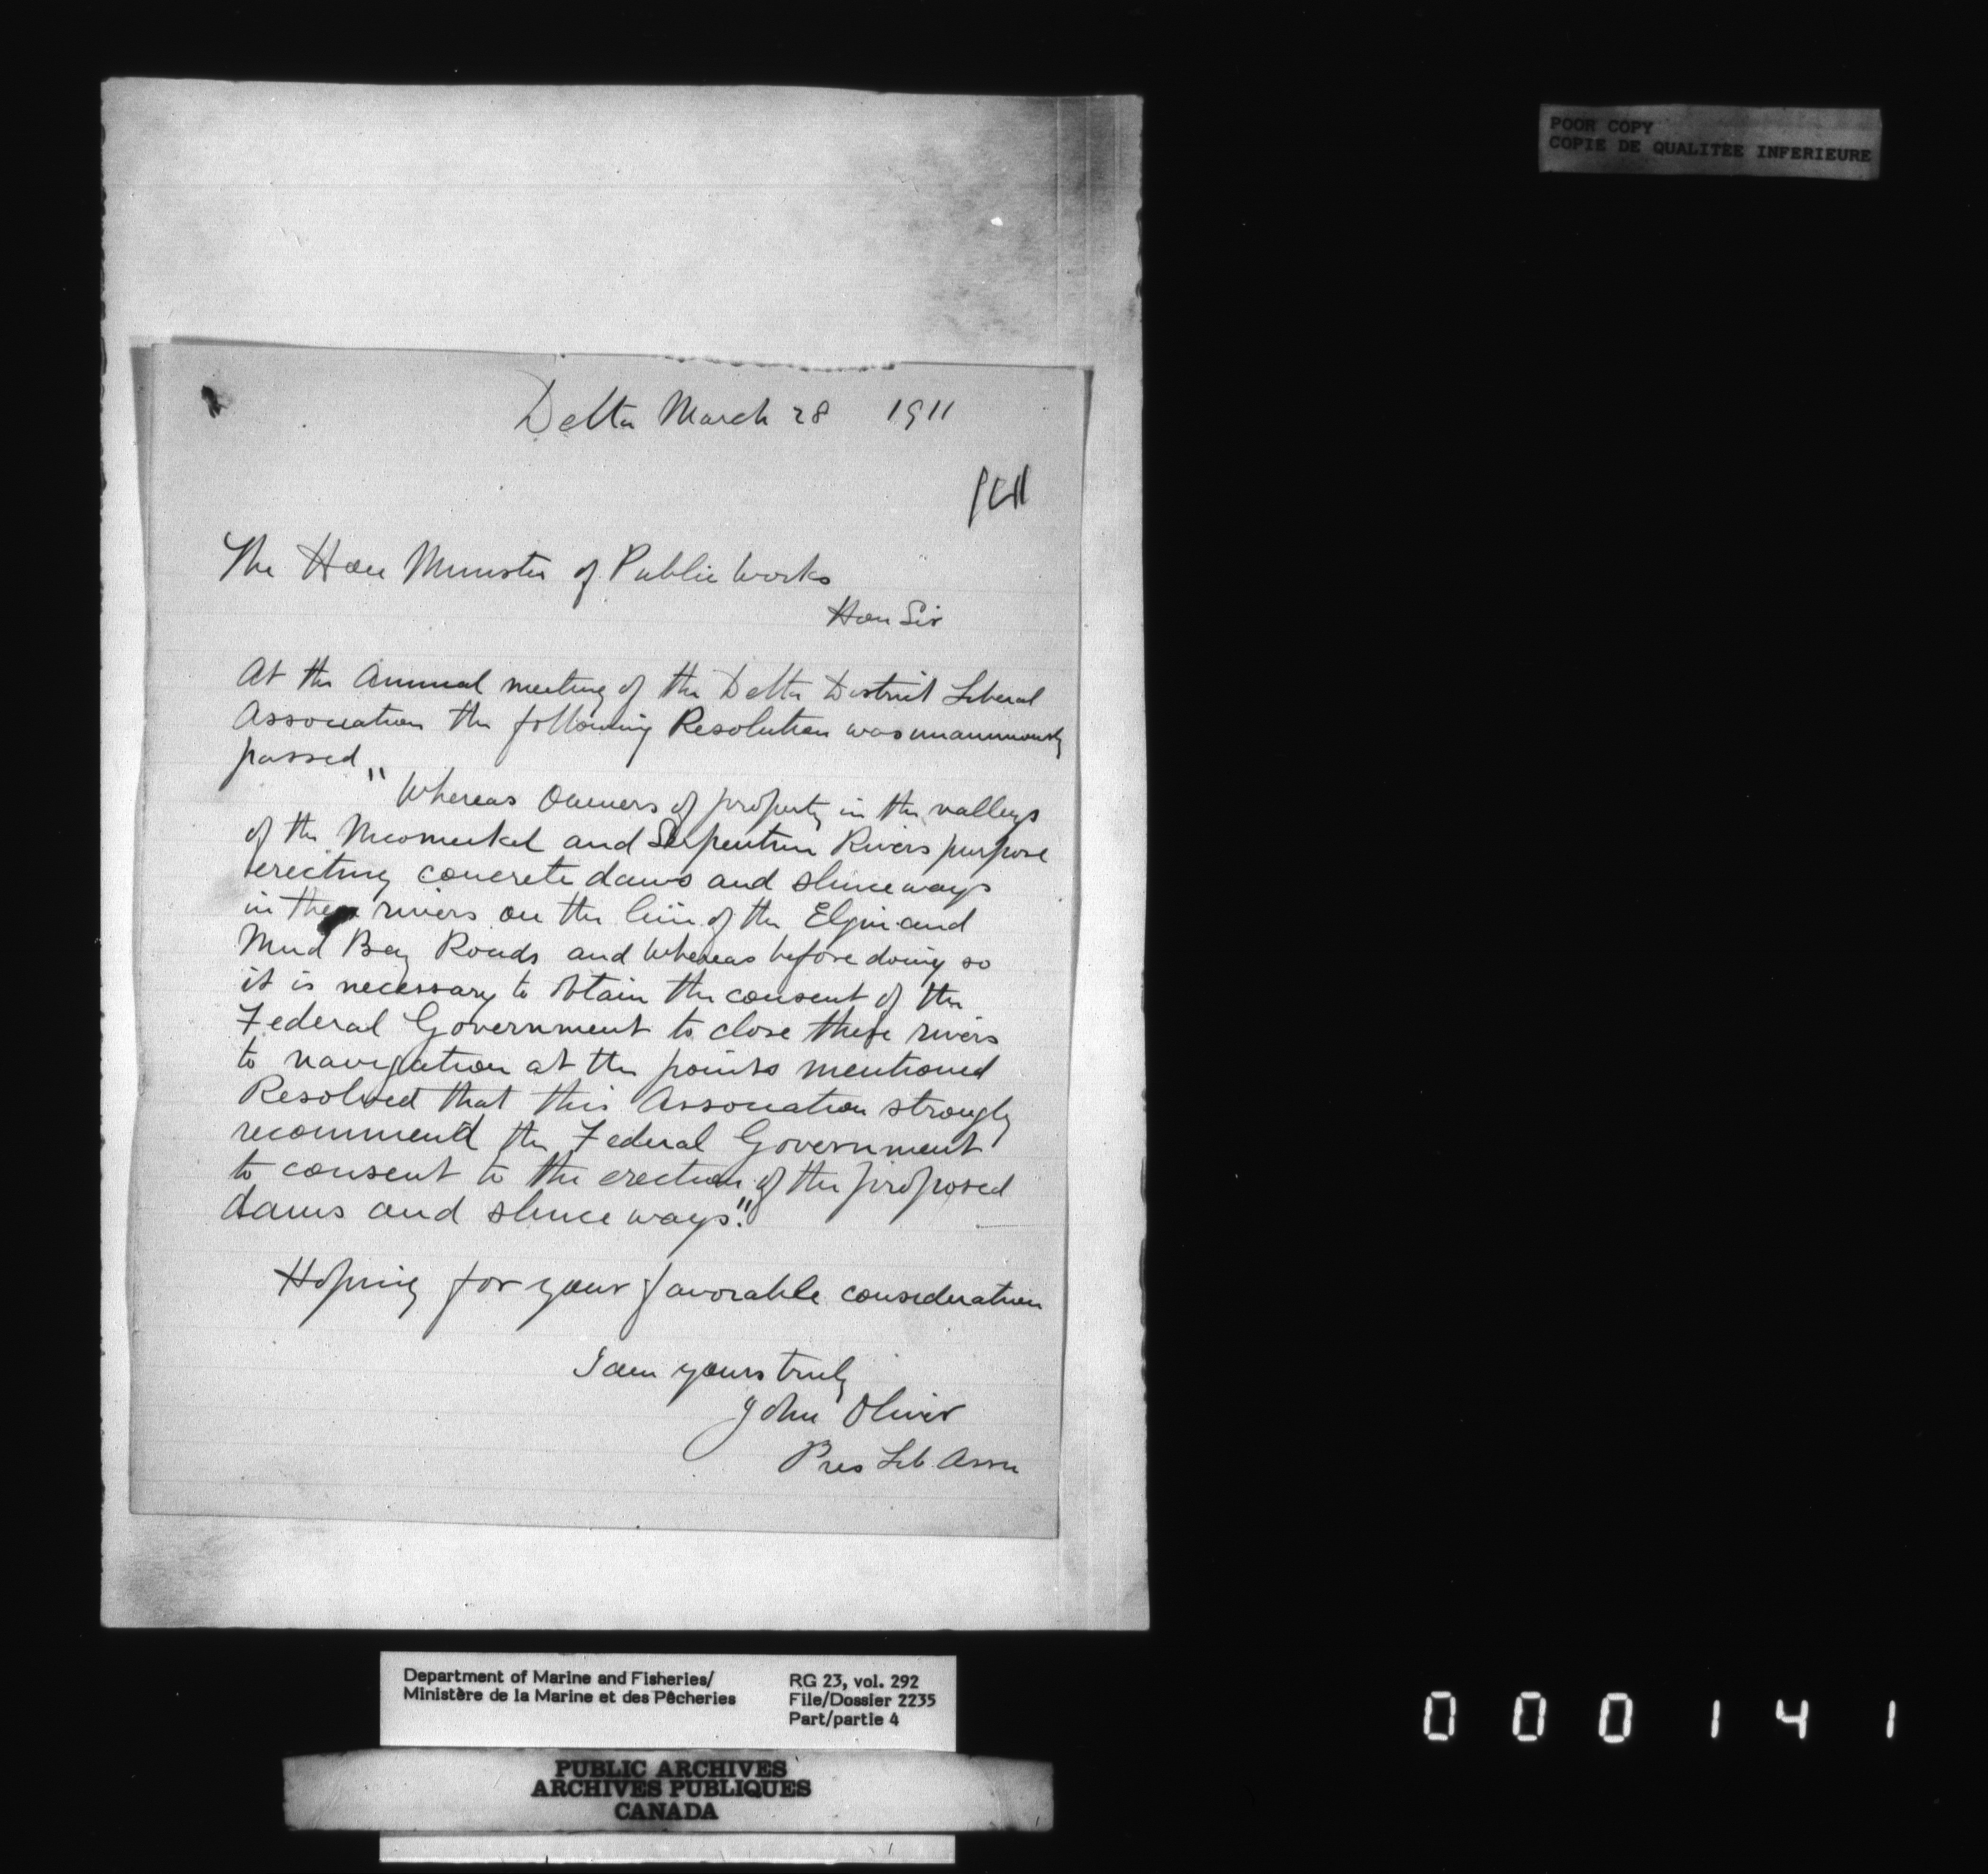 POOR COPY
COPIE DE QUALITEE INFERIEURE
Delta March 28 1911
The Hon Minister of Public Works
Hon Sir
At the Annual meeting of the Delta District Liberal
Association the following Resolution was unanimously
passed
" Whereas Owners of property in the valleys
of the Nicomeckel and Serpentine Rivers purpose
erecting concrete dams and sluiceways
in these rivers on the line of the Elgin and
Mud Bay Roads and Whereas before doing so
it is necessary to obtain the consent of the
Federal Government to close these rivers
to navigation at the points mentioned
Resolved that this Association strongly
recommend the Federal Government
to consent to the erection of the proposed
dams and sluice ways."
Hoping for your favorable consideration
I am yours truly
John Oliver
Pres Lib Assn
Department of Marine and Fisheries/
Ministère de la Marine et des Pêcheries
RG 23, vol. 292
File/Dossier 2235
Part/partie 4
PUBLIC ARCHIVES
ARCHIVES PUBLIQUES
CANADA
000141